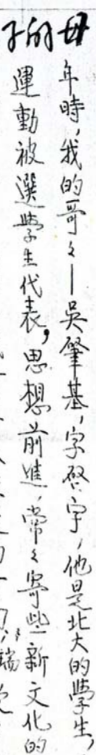 子的母
年時,我的哥々—吳肇基,字啓宇,他是北大的學生,
運動被選學生代表,思想前進,常々寄些新文化的